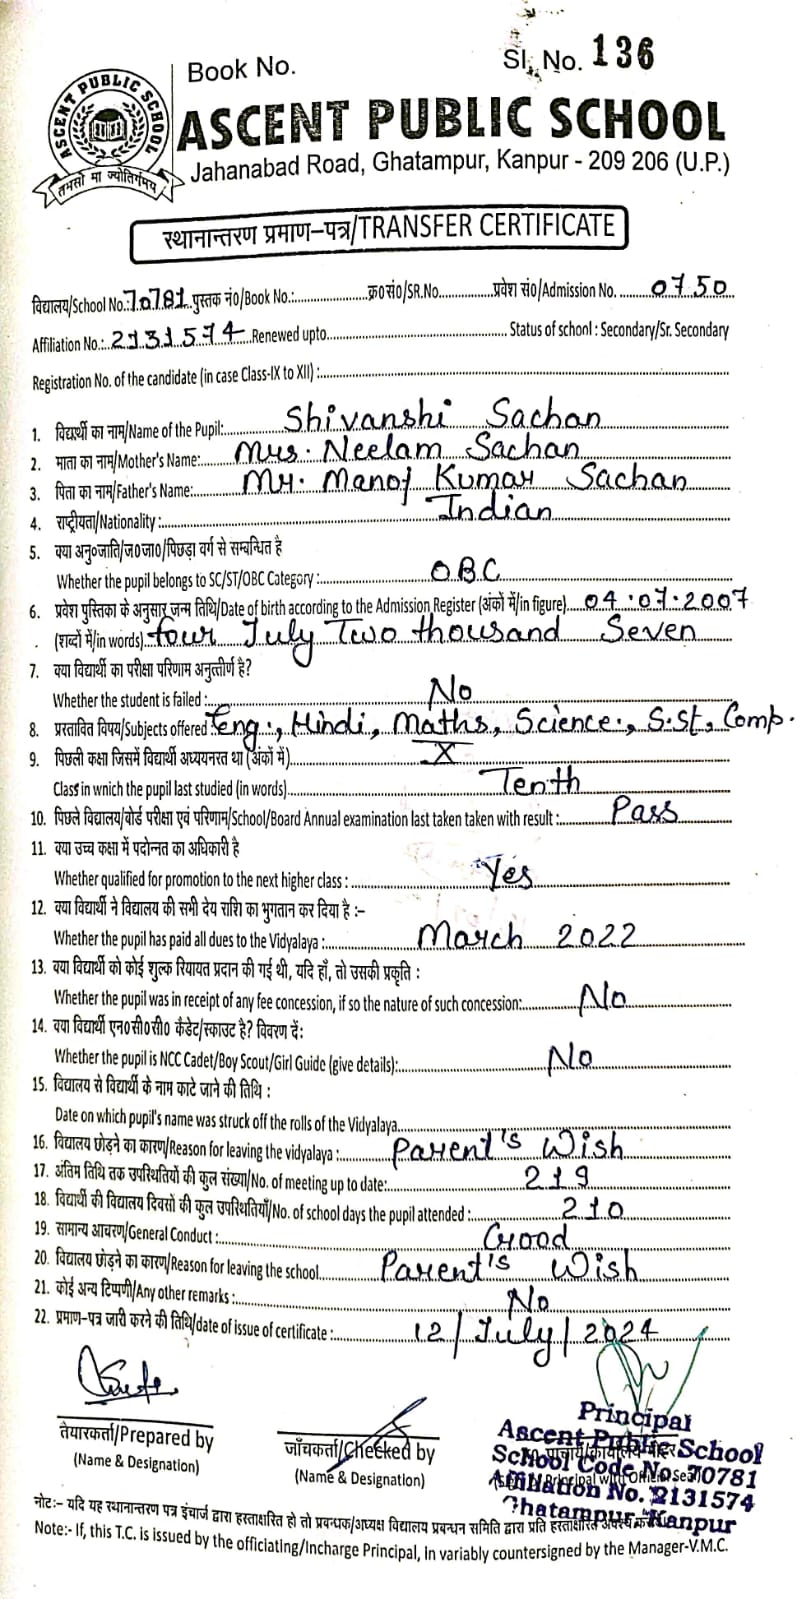 Book No.
Sl. No. 136
ASCENT PUBLIC SCHOOL
तमसो मा ज्योतिर्गमय
ASCENT PUBLIC SCHOOL
Jahanabad Road, Ghatampur, Kanpur - 209 206 (U.P.)
स्थानान्तरण प्रमाण–पत्र/TRANSFER CERTIFICATE
विद्यालय/School No.:70781 पुस्तक नं०/Book No.: क्र०सं०/SR.No. प्रवेश सं०/Admission No. 0750
Affiliation No.: 2131574 Renewed upto. Status of school : Secondary/Sr. Secondary
Registration No. of the candidate (in case Class-IX to XII) :
1. विद्यार्थी का नाम/Name of the Pupil: Shivanshi Sachan
2. माता का नाम/Mother's Name: Mrs. Neelam Sachan
3. पिता का नाम/Father's Name: Mr. Manoj Kumar Sachan
4. राष्ट्रीयता/Nationality : Indian
5. क्या अनु०जाति/ज०जा०/पिछड़ा वर्ग से सम्बन्धित है
Whether the pupil belongs to SC/ST/OBC Category : OBC
6. प्रवेश पुस्तिका के अनुसार जन्म तिथि/Date of birth according to the Admission Register (अंकों में/in figure) 04.07.2007
(शब्दों में/in words) four July Two thousand Seven
7. क्या विद्यार्थी का परीक्षा परिणाम अनुत्तीर्ण है?
Whether the student is failed : No
8. प्रस्तावित विषय/Subjects offered Eng., Hindi, Maths, Science., S.St, Comp.
9. पिछली कक्षा जिसमें विद्यार्थी अध्ययनरत था (अंकों में) X
Class in wnich the pupil last studied (in words) Tenth
10. पिछले विद्यालय/बोर्ड परीक्षा एवं परिणाम/School/Board Annual examination last taken taken with result : Pass
11. क्या उच्च कक्षा में पदोन्नत का अधिकारी है
Whether qualified for promotion to the next higher class : Yes
12. क्या विद्यार्थी ने विद्यालय की सभी देय राशि का भुगतान कर दिया है :–
Whether the pupil has paid all dues to the Vidyalaya : March 2022
13. क्या विद्यार्थी को कोई शुल्क रियायत प्रदान की गई थी, यदि हाँ, तो उसकी प्रकृति :
Whether the pupil was in receipt of any fee concession, if so the nature of such concession: No
14. क्या विद्यार्थी एन०सी०सी० कैडेट/स्काउट है? विवरण दें:
Whether the pupil is NCC Cadet/Boy Scout/Girl Guide (give details): No
15. विद्यालय से विद्यार्थी के नाम काटे जाने की तिथि :
Date on which pupil's name was struck off the rolls of the Vidyalaya
16. विद्यालय छोड़ने का कारण/Reason for leaving the vidyalaya : Parent's Wish
17. अंतिम तिथि तक उपस्थितियों की कुल संख्या/No. of meeting up to date: 219
18. विद्यार्थी की विद्यालय दिवसो की कुल उपस्थितियाँ/No. of school days the pupil attended : 210
19. सामान्य आचरण/General Conduct : Good
20. विद्यालय छोड़ने का कारण/Reason for leaving the school Parent's Wish
21. कोई अन्य टिप्पणी/Any other remarks : No
22. प्रमाण–पत्र जारी करने की तिथि/date of issue of certificate : 12/July/2024
तैयारकर्ता/Prepared by
(Name & Designation)
जाँचकर्ता/Checked by
(Name & Designation)
Principal
Ascent Public School
School Code No. 70781
Affiliation No. 2131574
Ghatampur, Kanpur
नोटः– यदि यह स्थानान्तरण पत्र इंचार्ज द्वारा हस्ताक्षरित हो तो प्रबन्धक/अध्यक्ष विद्यालय प्रबन्धन समिति द्वारा प्रति हस्ताक्षरित
Note:- If, this T.C. is issued by the officiating/Incharge Principal, in variably countersigned by the Manager-V.M.C.